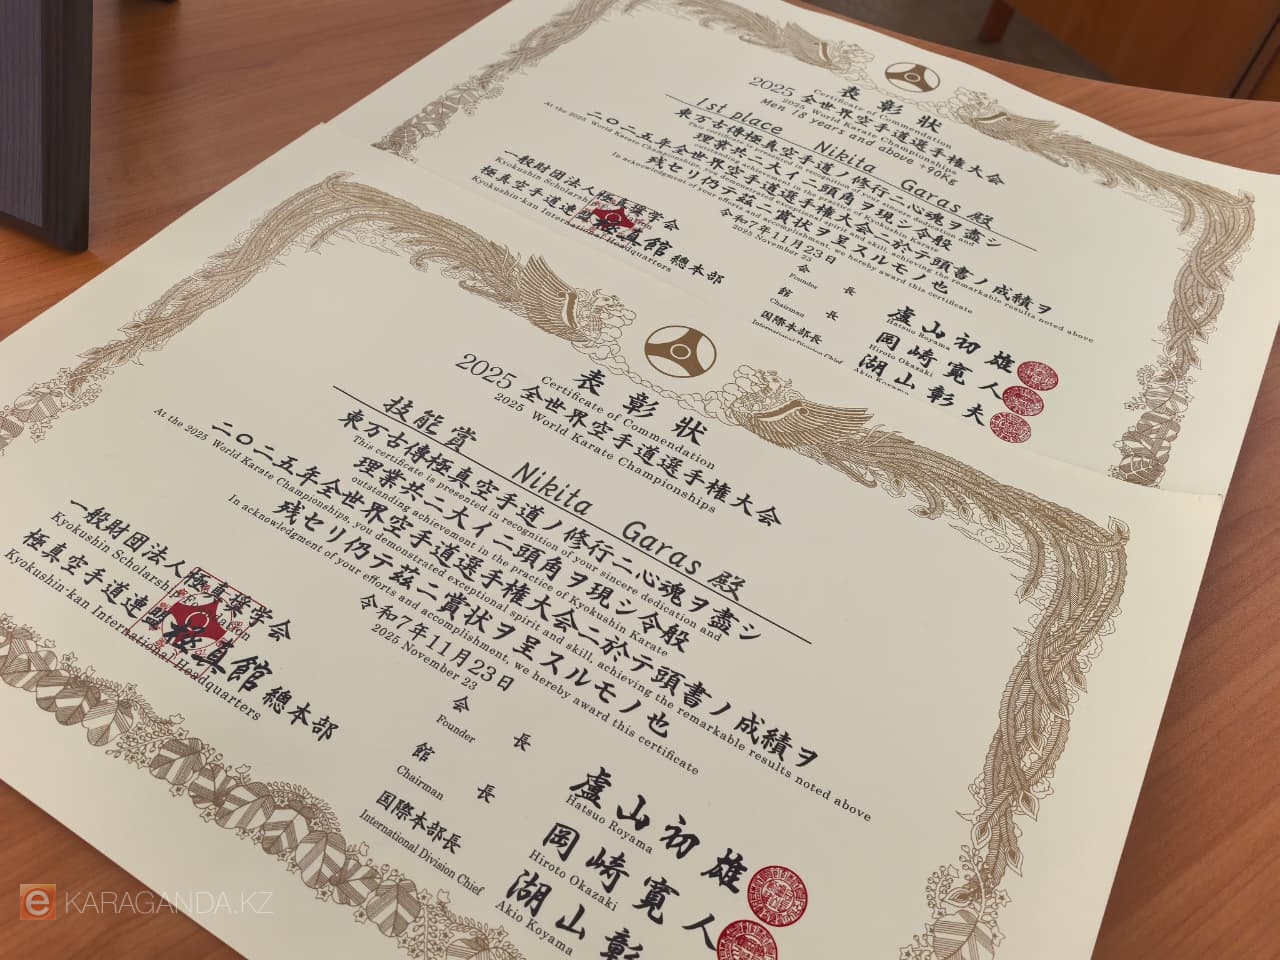 表彰狀
Certificate of Commendation
2025 全世界空手道選手権大会
2025 World Karate Championships
Men 18 years and above +90kg
1st place Nikita Garas 殿
東万古傳極真空手道ノ修行ニ心魂ヲ盡シ
This certificate is presented in recognition of your sincere dedication and
理業共ニ大イニ頭角ヲ現シ令般
outstanding achievement in the practice of Kyokushin Karate
二〇二五年全世界空手道選手権大会ニ於テ頭書ノ成績ヲ
At the 2025 World Karate Championships, you demonstrated exceptional spirit and skill, achieving the remarkable results noted above
残セリ仍テ茲ニ賞状ヲ呈スルモノ也
In acknowledgment of your efforts and accomplishment, we hereby award this certificate
令和7年11月23日
2025 November 23
一般財団法人極真奨学会
Kyokushin Scholarship Foundation
極真空手道連盟極真館 總本部
Kyokushin-kan International Headquarters
会長 盧山初雄
Founder Hatsuo Royama
館長 岡崎寛人
Chairman Hiroto Okazaki
国際本部長 湖山彰夫
International Division Chief Akio Koyama
表彰狀
Certificate of Commendation
2025 全世界空手道選手権大会
2025 World Karate Championships
技能賞 Nikita Garas 殿
東万古傳極真空手道ノ修行ニ心魂ヲ盡シ
This certificate is presented in recognition of your sincere dedication and
理業共ニ大イニ頭角ヲ現シ令般
outstanding achievement in the practice of Kyokushin Karate
二〇二五年全世界空手道選手権大会ニ於テ頭書ノ成績ヲ
At the 2025 World Karate Championships, you demonstrated exceptional spirit and skill, achieving the remarkable results noted above
残セリ仍テ茲ニ賞状ヲ呈スルモノ也
In acknowledgment of your efforts and accomplishment, we hereby award this certificate
令和7年11月23日
2025 November 23
一般財団法人極真奨学会
Kyokushin Scholarship Foundation
極真空手道連盟極真館 總本部
Kyokushin-kan International Headquarters
会長 盧山初雄
Founder Hatsuo Royama
館長 岡崎寛人
Chairman Hiroto Okazaki
国際本部長 湖山彰
International Division Chief Akio Koyama
e KARAGANDA.KZ